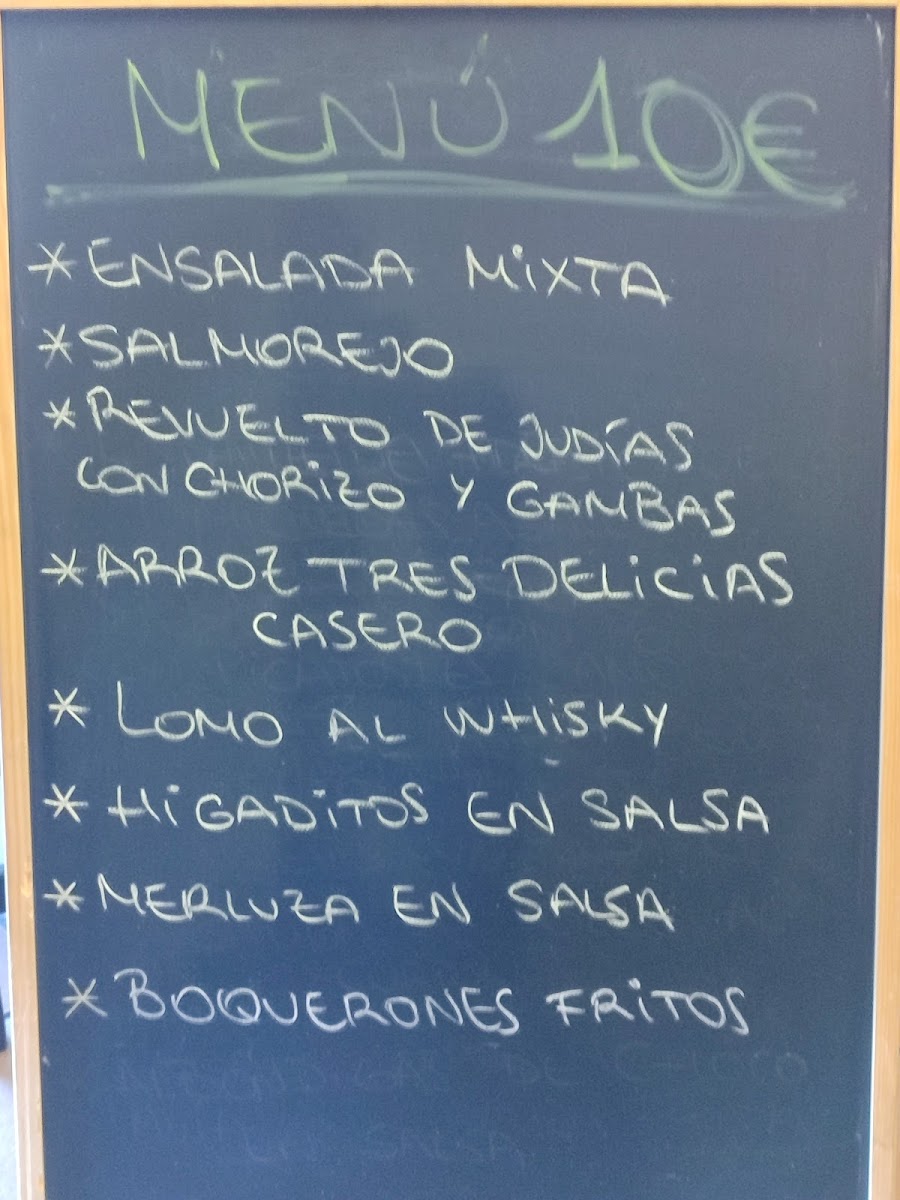 MENÚ 10€
* ENSALADA MiXTA
* SALMOREJO
* REVUELTO DE JUDÍAS
CON CHORiZO Y GAMBAS
* ARROZ TRES DELiCiAS
CASERO
* LOMO AL WHiSKY
* HiGADiTOS EN SALSA
* MERLUZA EN SALSA
* BOQUERONES FRiTOS